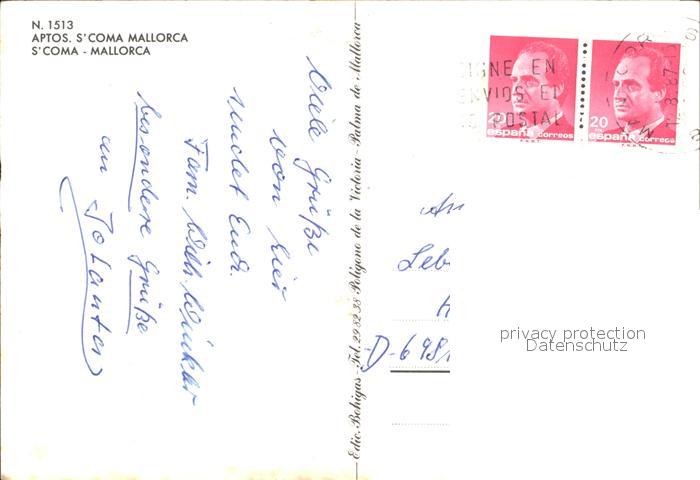 N. 1513
APTOS. S'COMA MALLORCA
S'COMA - MALLORCA
Viele Grüße
von hier
sendet Euch
Fam. Wilh. Winkler
besondere Grüße
an Jolanta
Edic. Bohigas - Tel. 29 82 38 Polígono de la Victoria - Palma de Mallorca
IGNE EN
ENVIOS EL
POSTAL
20
españa correos
20
españa correos
Leb
D-698
privacy protection
Datenschutz